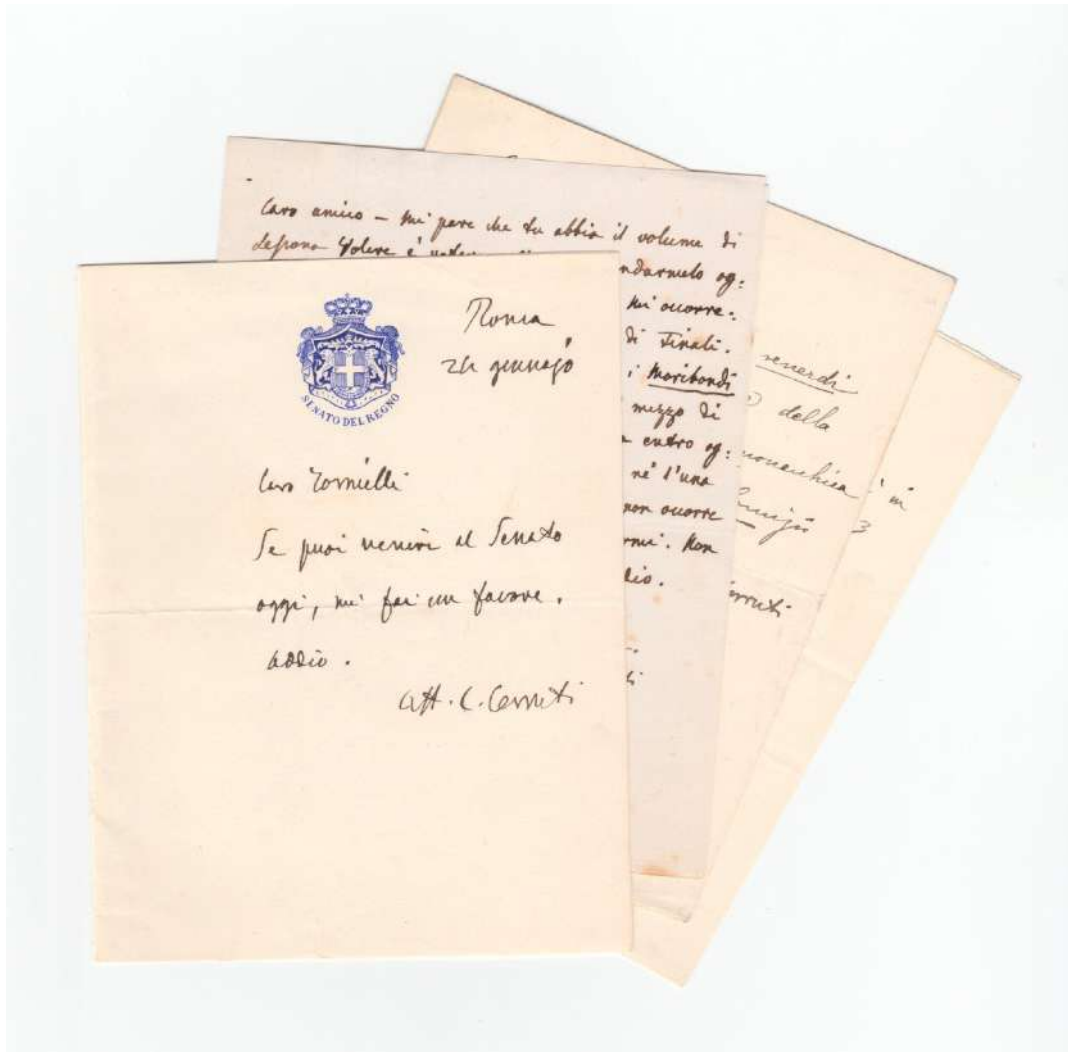 SENATO DEL REGNO
Roma
24 gennajo
Caro Tornielli
Se puoi venire al Senato
oggi, mi fai un favore.
Addio.
aff. C. Cerruti
Caro amico – Mi pare che tu abbia il volume di
Lessona Volere è
ndarmelo og:
Mi occorre:
di Finali.
i Moribondi
mezzo di
entro og:
nè l'una
non occorre
rmi. Non
dio.
venerdì
della
monarchica
rruti
in
3